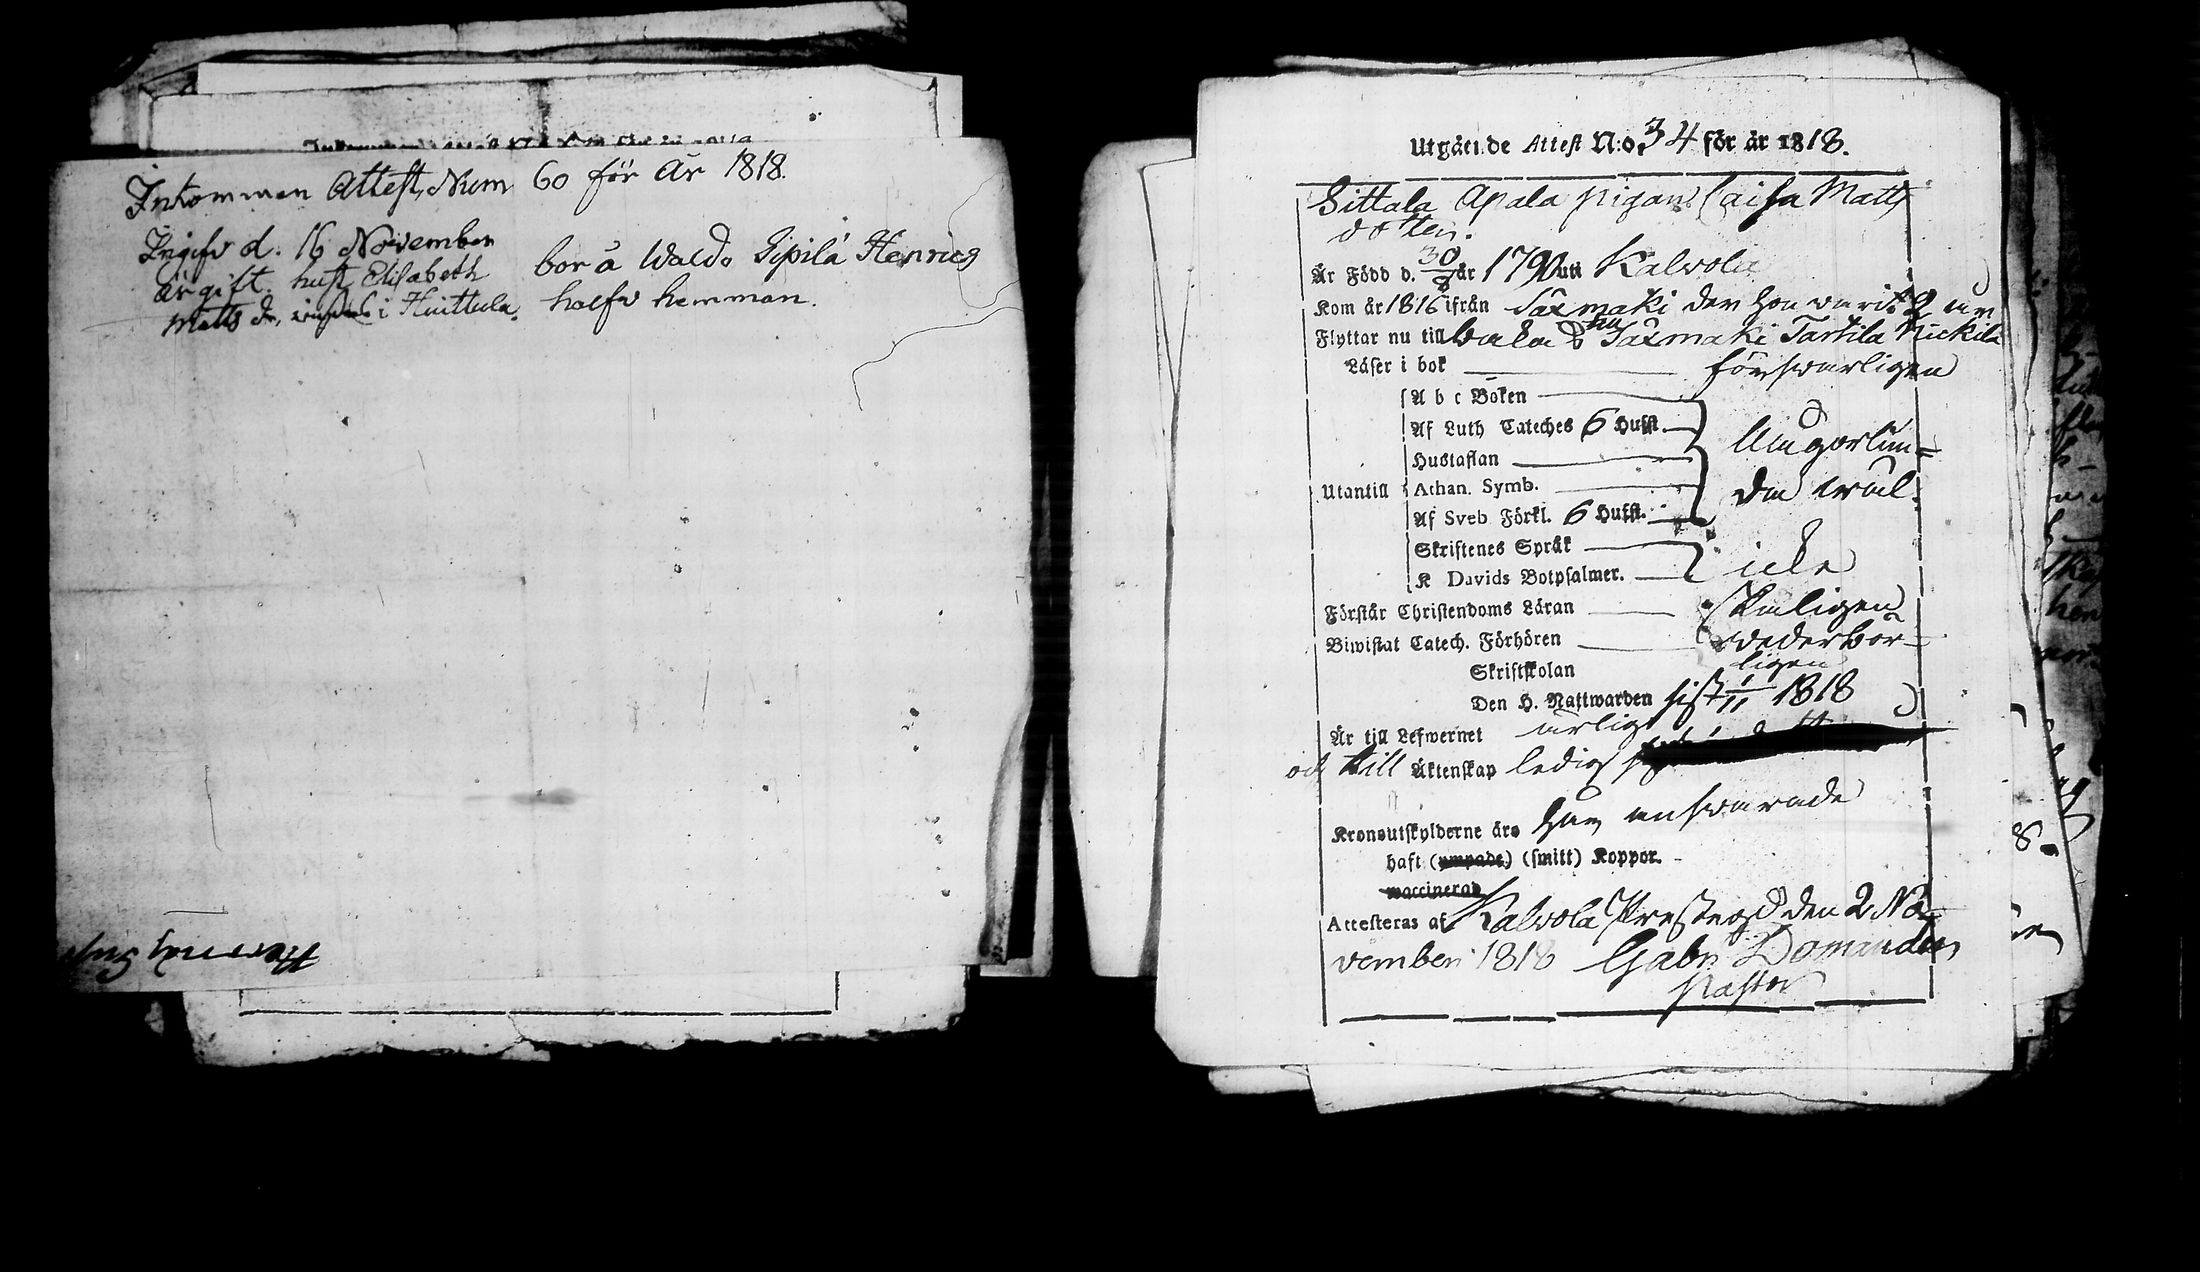 Inkommen Attest, Num 60 för År 1818.
Ingifv d. 16 November
är gift. hust. Elisabeth
Matts dr, i Huittula.
bor å Waldo Sipilä Henrics
halfv hemman.
Utgående Attest N:o 34 för år 1818.
Sittala Apala pigan Caisa Matts
dotter.
Är Född d. 30/8 år 1790 uti Kalvola
Kom år 1816 ifrån Säxmäki der hon varit 2 år
Flyttar nu till Säxmäki Tarttila Nickilä
Läser i bok försvarligen
A b c Boken
Af Luth Cateches 6 Hufst.
Hustaflan
Utantill Athan. Symb.
Af Sveb Förkl. 6 Hufst.
Någorlun=
da väl.
Skriftenes Språk
K Davids Botpsalmer.
icke
Förstår Christendoms Läran skäligen
Biwistat Catech. Förhören wederbör=
ligen
Skriftskolan
Den H. Nattwarden sist 1/11 1818
Är till Lefwernet ärlig
och till Äktenskap ledig
Kronoutskylderne äro ansvarade
haft (ympade) (smitt) Koppor.
vaccinerad
Attesteras af Kalvola Prestegd den 2 No
vember 1818 Gabr. Domander
Pastor